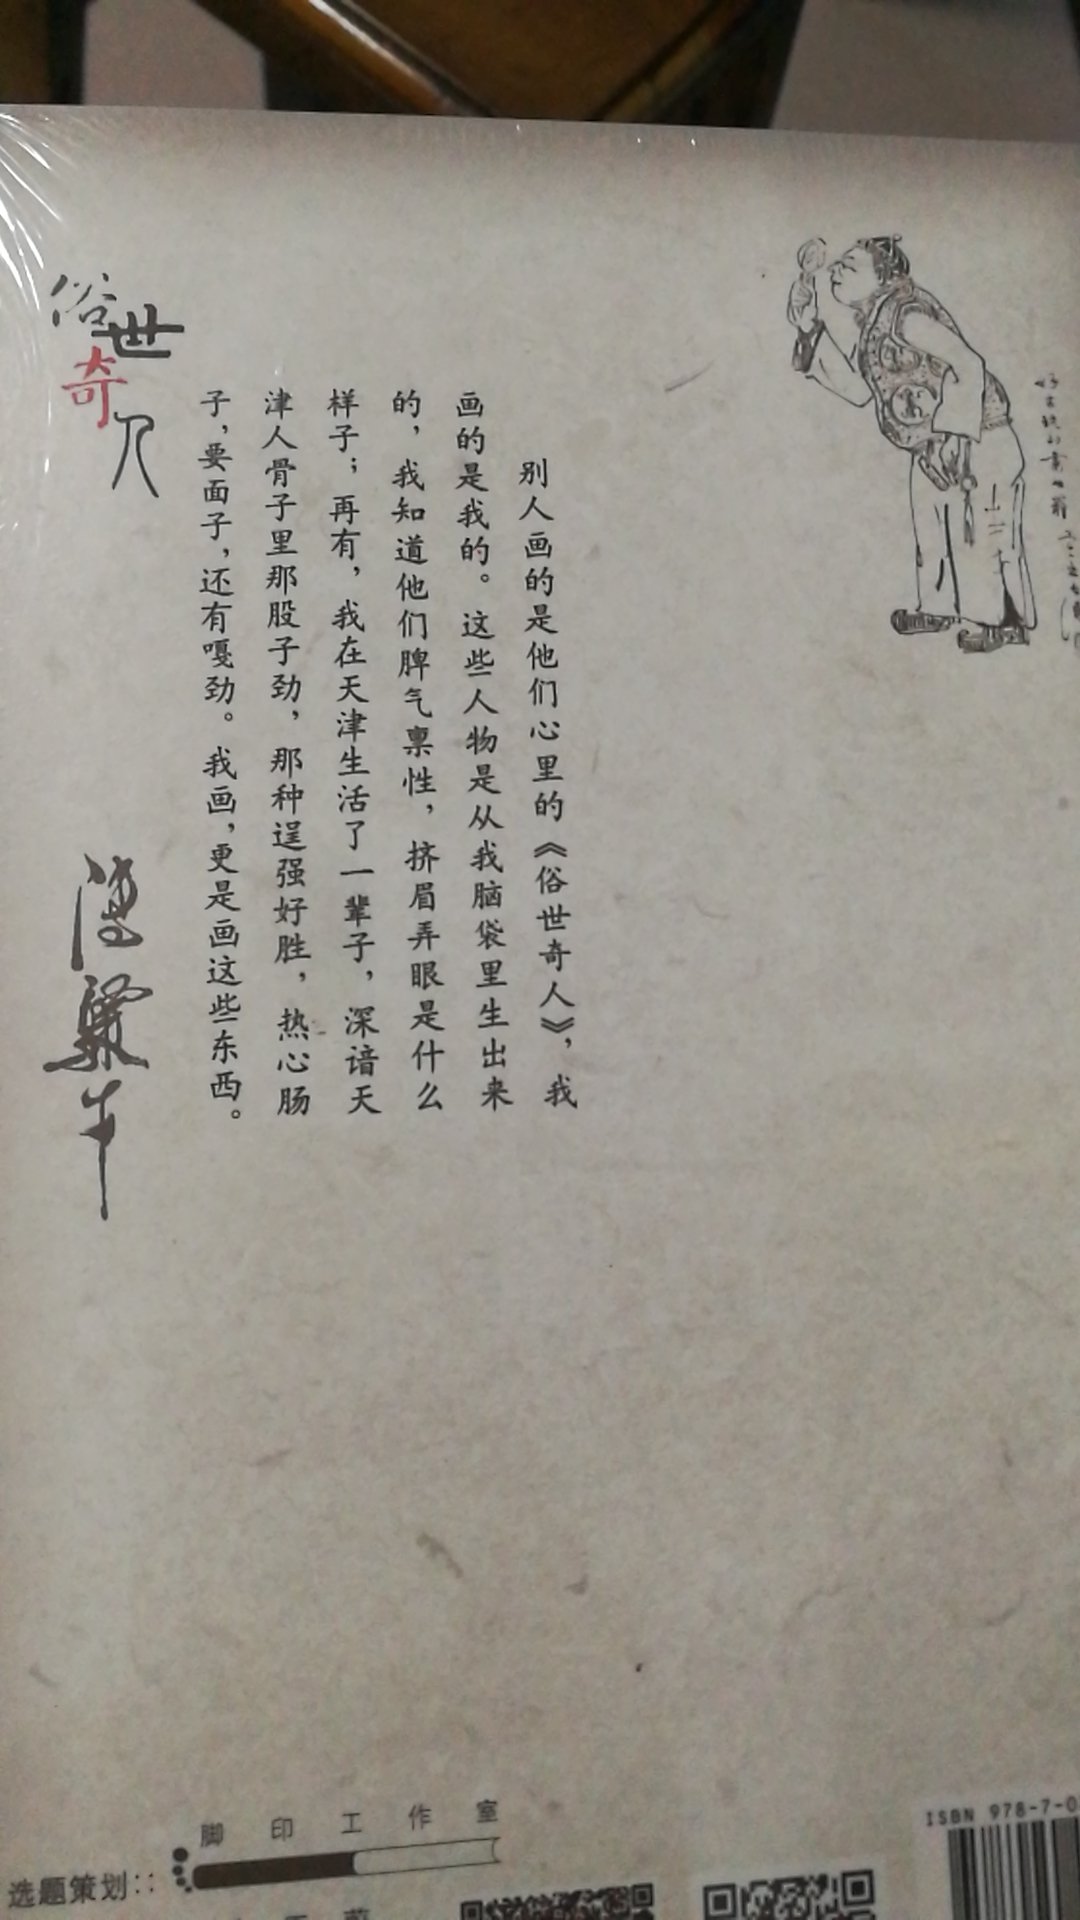 别人画的是他们心里的《俗世奇人》，我
画的是我的。这些人物是从我脑袋里生出来
的，我知道他们脾气禀性，挤眉弄眼是什么
样子；再有，我在天津生活了一辈子，深谙天
津人骨子里那股子劲，那种逞强好胜，热心肠
子，要面子，还有嘎劲。我画，更是画这些东西。
俗世奇人
冯骥才
脚印工作室
选题策划::
ISBN 978-7-0